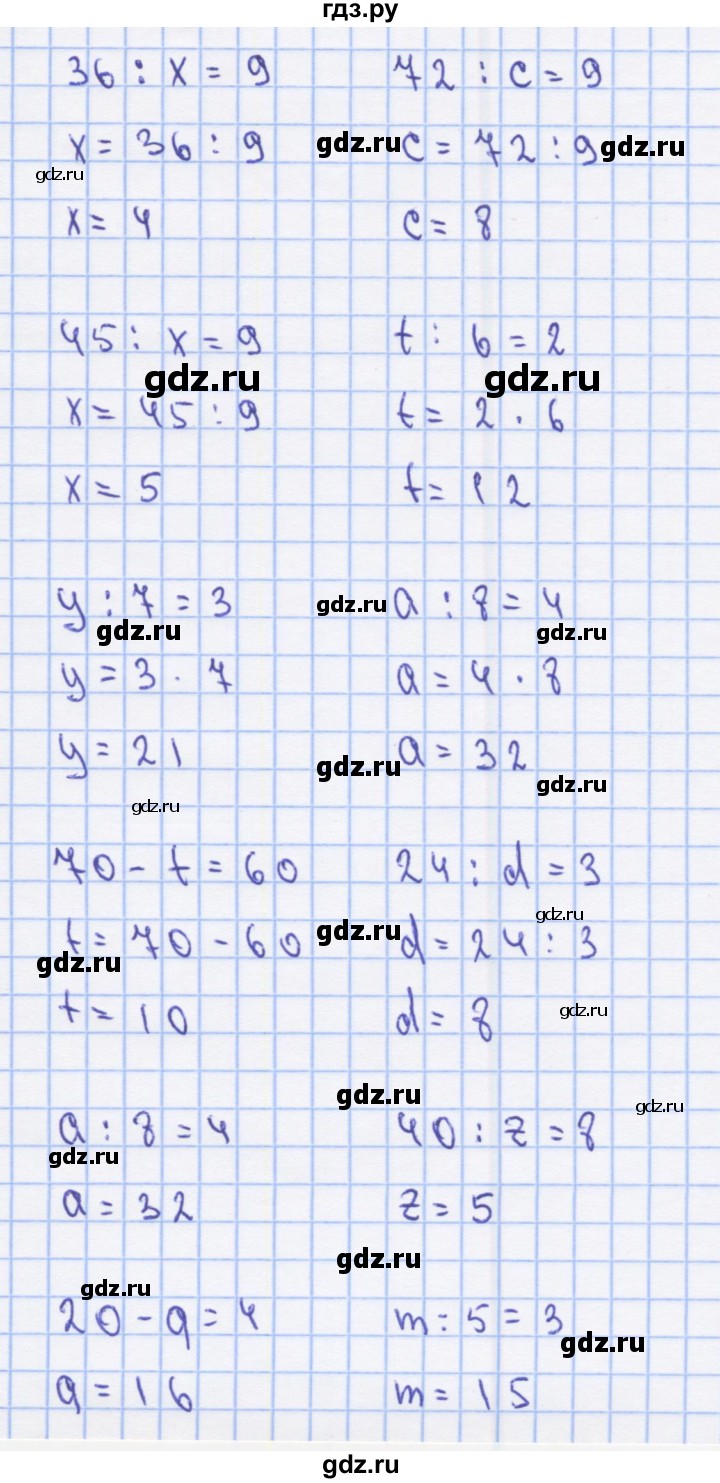 гдз.ру
36 : x = 9 72 : c = 9
x = 36 : 9 gdz.ru c = 72 : 9 gdz.ru
gdz.ru
x = 4 c = 8
45 : x = 9 t : 6 = 2
gdz.ru gdz.ru
x = 45 : 9 t = 2 · 6
x = 5 t = 12
y : 7 = 3 gdz.ru a : 8 = 4
gdz.ru gdz.ru
y = 3 · 7 a = 4 · 8
y = 21 gdz.ru a = 32
gdz.ru
gdz.ru
70 - t = 60 24 : d = 3
gdz.ru
t = 70 - 60 gdz.ru d = 24 : 3
gdz.ru
t = 10 d = 8 gdz.ru
gdz.ru gdz.ru
a : 8 = 4 40 : z = 8
gdz.ru
a = 32 z = 5
gdz.ru
gdz.ru
20 - a = 4 m : 5 = 3
gdz.ru
a = 16 m = 15
gdz.ru